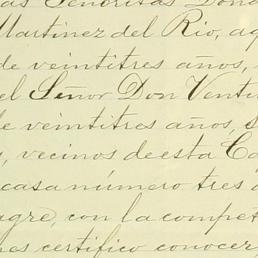 las Señoritas Dona
Martinez del Rio, aq
de veintitres años,
el Señor Don Ventu
de veintitres años, s
, vecinos de esta Ca
casa número tres
agre, con la compet
nes certifico conocer